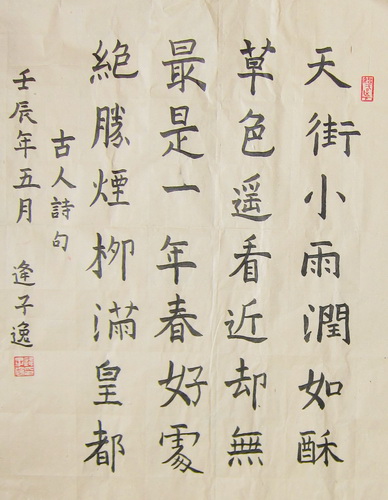 天街小雨潤如酥
草色遥看近却無
最是一年春好處
絶勝煙柳滿皇都
古人詩句
壬辰年五月 逢子逸